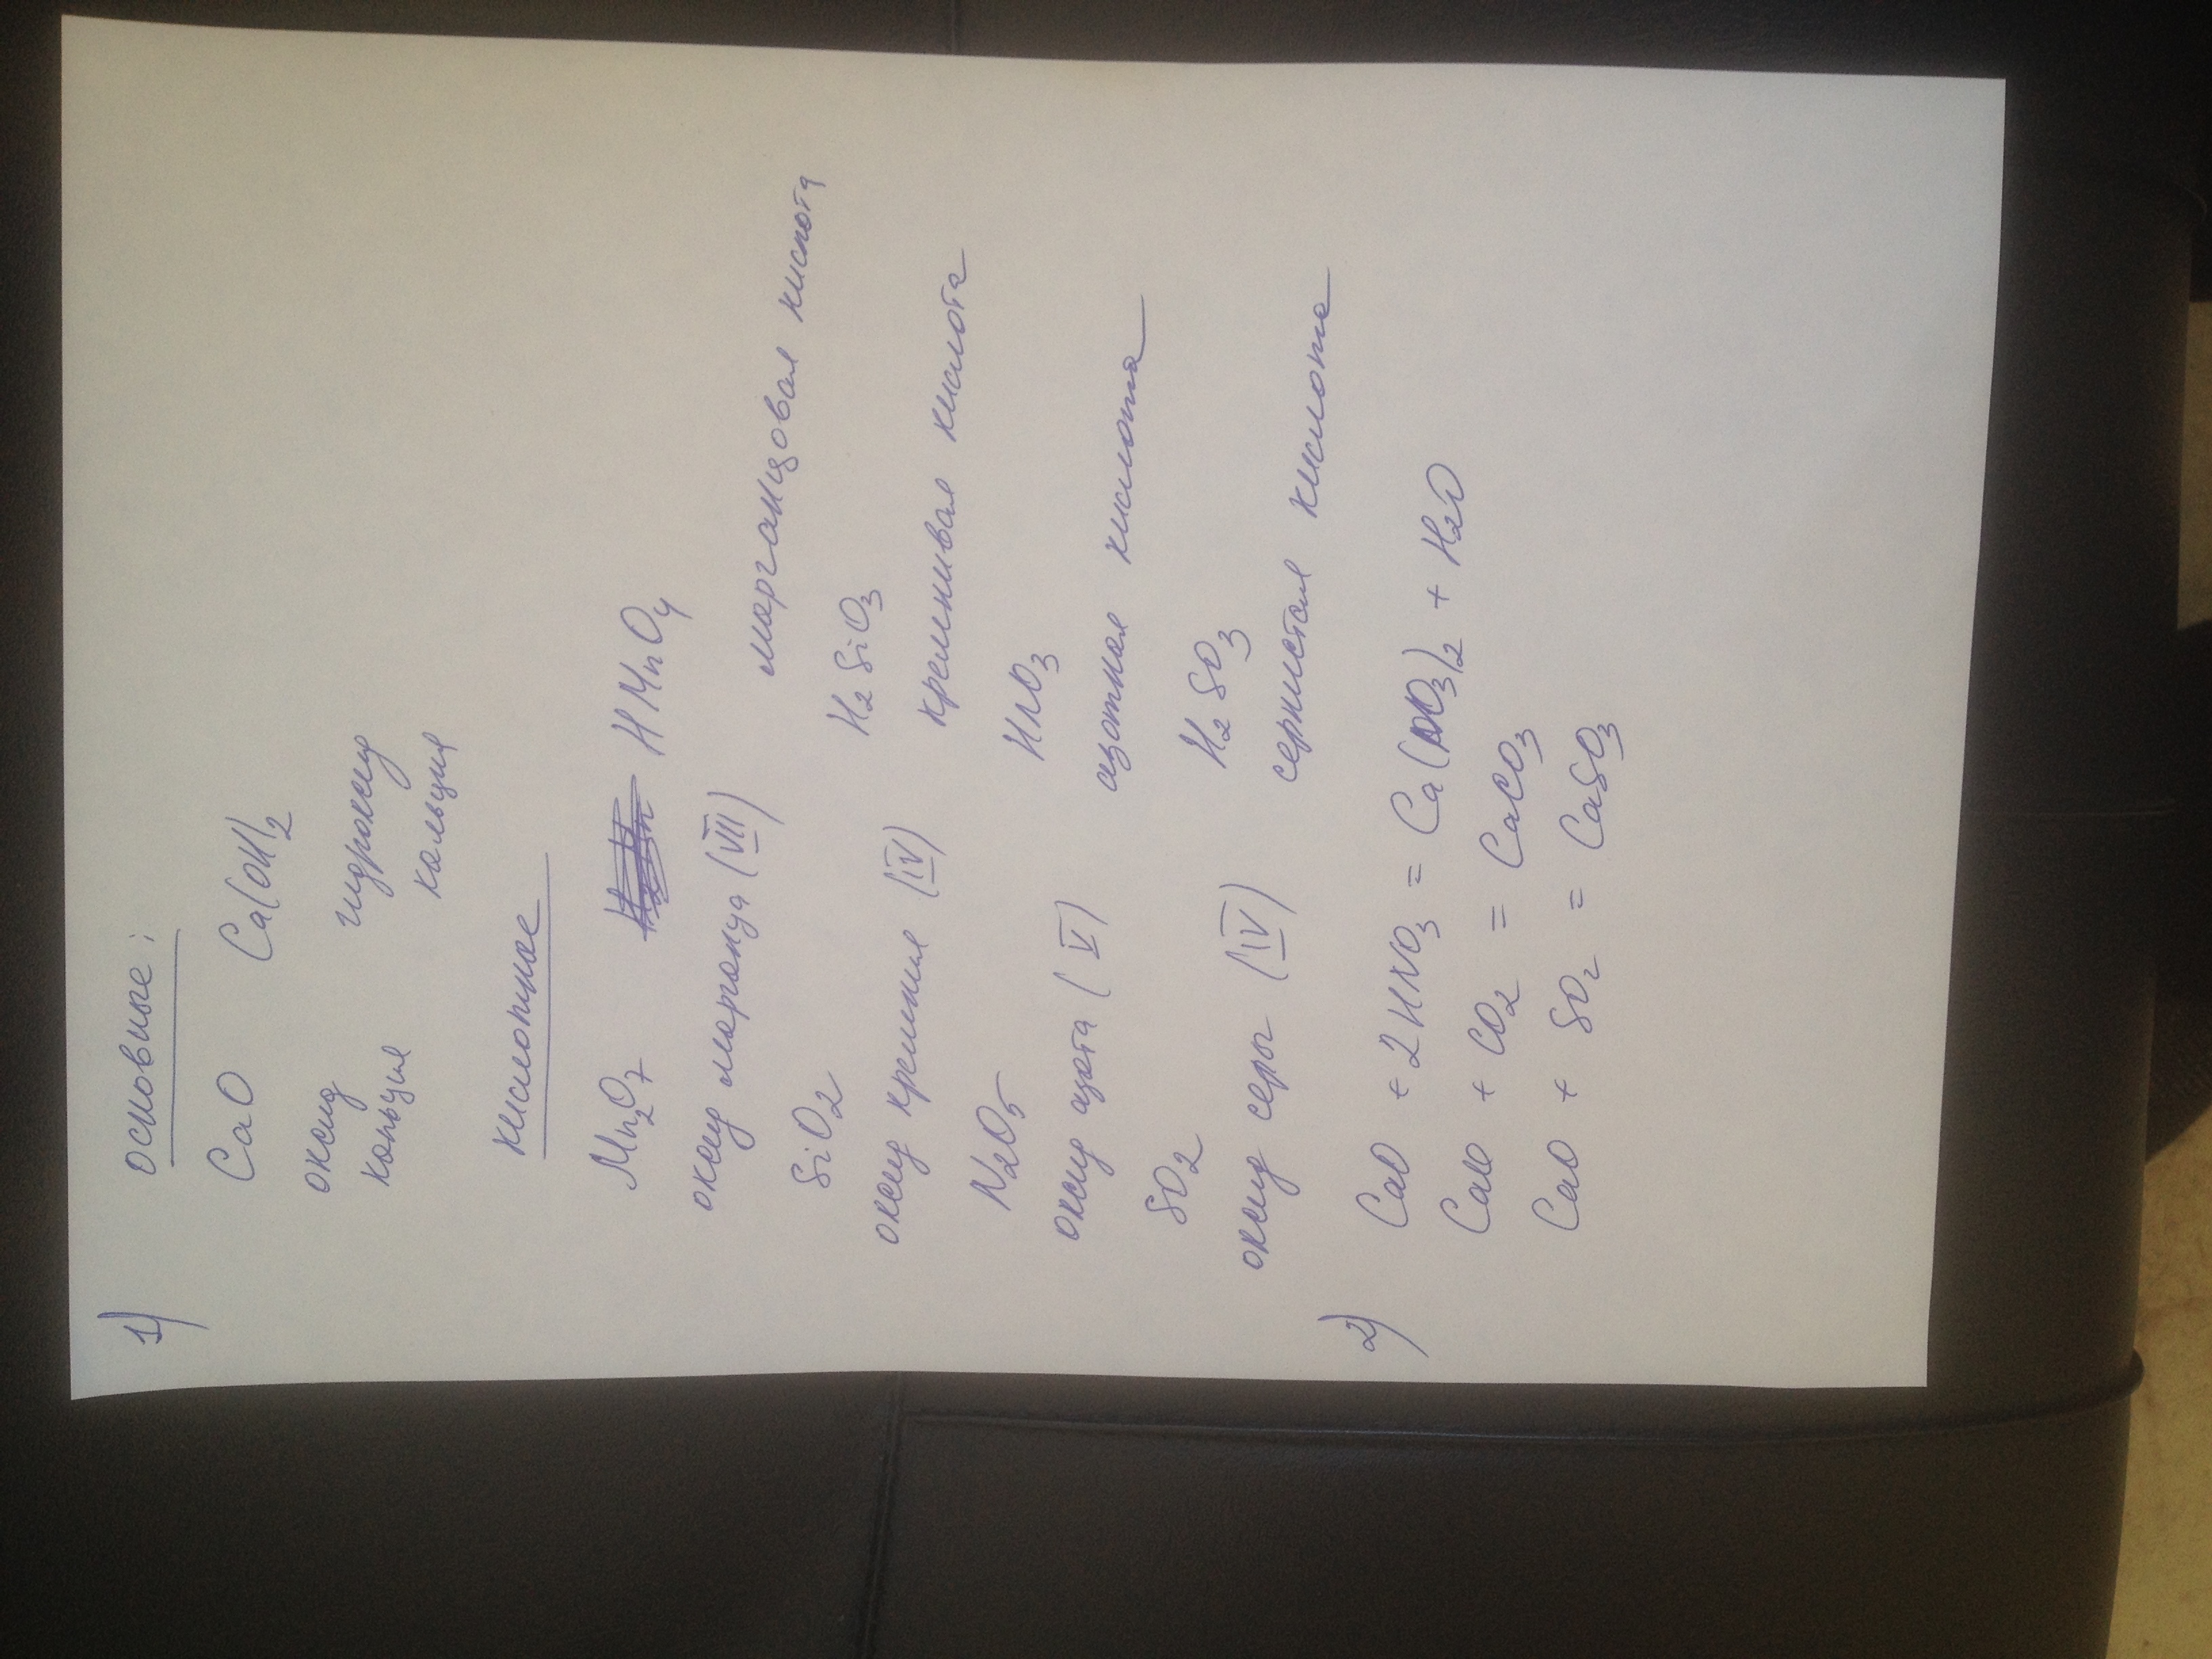 1) основные:
CaO Ca(OH)₂
оксид гидроксид
кальция кальция
кислотные
Mn₂O₇ HMnO₄
оксид марганца (VIII) марганцовая кислота
SiO₂ H₂SiO₃
оксид кремния (IV) кремнивая кислота
N₂O₅ HNO₃
оксид азота (V) азотная кислота
SO₂ H₂SO₃
оксид серы (IV) сернистая кислота
2) CaO + 2HNO₃ = Ca(NO₃)₂ + H₂O
CaO + CO₂ = CaCO₃
CaO + SO₂ = CaSO₃